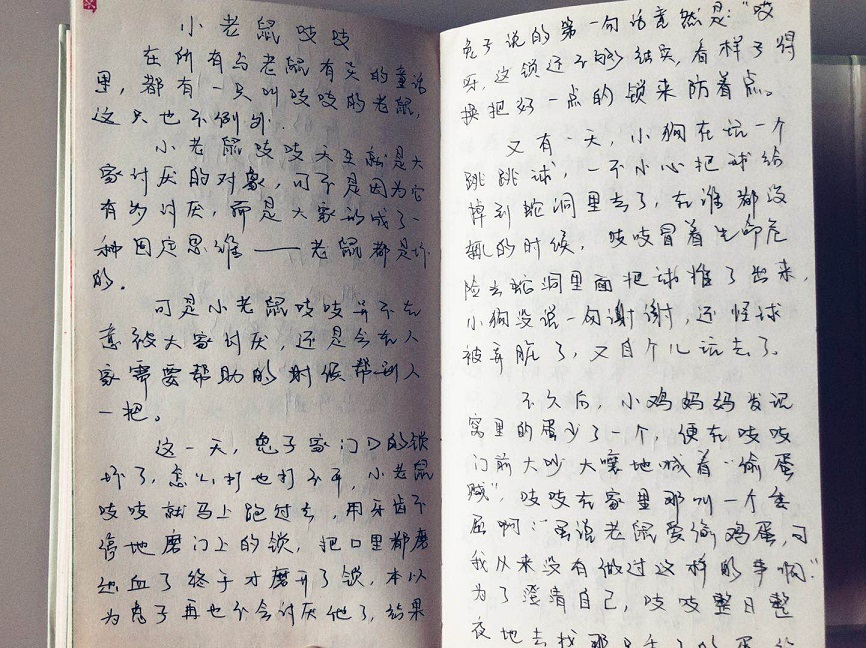 小老鼠吱吱
在所有与老鼠有关的童话
里，都有一只叫吱吱的老鼠，
这只也不例外。
小老鼠吱吱天生就是大
家讨厌的对象，可不是因为它
有多讨厌，而是大家形成了一
种固定思维——老鼠都是坏
的。
可是小老鼠吱吱并不在
意被大家讨厌，还是会在人
家需要帮助的时候帮到人
一把。
这一天，兔子家门口的锁
坏了，怎么打也打不开，小老鼠
吱吱就马上跑过去，用牙齿不
停地磨门上的锁，把口里都磨
出血了终于才磨开了锁，本以
为兔子再也不会讨厌他了，结果
兔子说的第一句话竟然是：“哎
呀，这锁还不够结实，看样子得
换把好一点的锁来防着点。
又有一天，小狗在玩一个
跳跳球，一不小心把球给
掉到蛇洞里去了，在谁都没
辙的时候，吱吱冒着生命危
险去蛇洞里面把球推了出来，
小狗没说一句谢谢，还怪球
被弄脏了，又自个儿玩去了。
不久后，小鸡妈妈发现
窝里的蛋少了一个，便在吱吱
门前大吵大嚷地喊着“偷蛋
贼”，吱吱在家里那叫一个委
屈啊：“虽说老鼠爱偷鸡蛋，可
我从来没有做过这样的事啊。”
为了澄清自己，吱吱整日整
夜地去找那